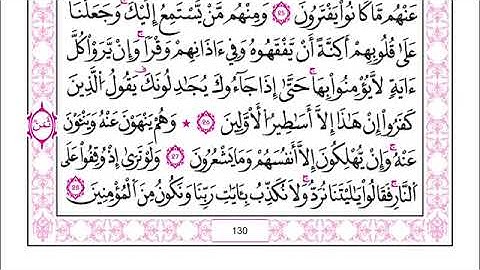 عَنْهُم مَّا كَانُواْ يَفْتَرُونَ 25 وَمِنْهُم مَّنْ يَّسْتَمِعُ إِلَيْكَ وَجَعَلْنَا
عَلَىٰ قُلُوبِهِمْ أَكِنَّةً أَنْ يَّفْقَهُوهُ وَفِي ءَاذَانِهِمْ وَقْراً وَإِنْ يَّرَوْاْ كُلَّ
ءَايَةٍ لَّا يُؤْمِنُواْ بِهَا حَتَّىٰ إِذَا جَآءُوكَ يُجَٰدِلُونَكَ يَقُولُ الَّذِينَ
كَفَرُواْ إِنْ هَٰذَا إِلَّا أَسَٰطِيرُ الْأَوَّلِينَ 26 ★ وَهُمْ يَنْهَوْنَ عَنْهُ وَيَنْـَٔوْنَ
ثمن
عَنْهُ وَإِنْ يُّهْلِكُونَ إِلَّا أَنفُسَهُمْ وَمَا يَشْعُرُونَ 27 وَلَوْ تَرَىٰ إِذْ وُقِفُواْ عَلَى
النَّارِ فَقَالُواْ يَٰلَيْتَنَا نُرَدُّ وَلَا نُكَذِّبُ بِـَٔايَٰتِ رَبِّنَا وَنَكُونُ مِنَ الْمُؤْمِنِينَ 28
130